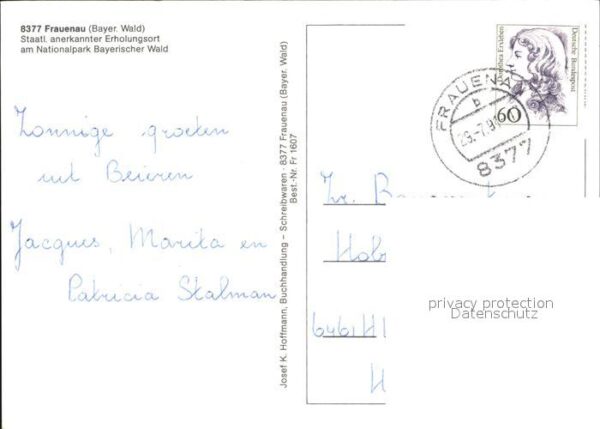 8377 Frauenau (Bayer. Wald)
Staatl. anerkannter Erholungsort
am Nationalpark Bayerischer Wald
Zonnige groeten
uit Beieren
Jacques, Marita en
Patricia Stalman
Josef K. Hoffmann, Buchhandlung – Schreibwaren · 8377 Frauenau (Bayer. Wald)
Best.-Nr. Fr 1607
Dorothea Erxleben
Deutsche Bundespost
60
FRAUENAU
b
8377
privacy protection
Datenschutz